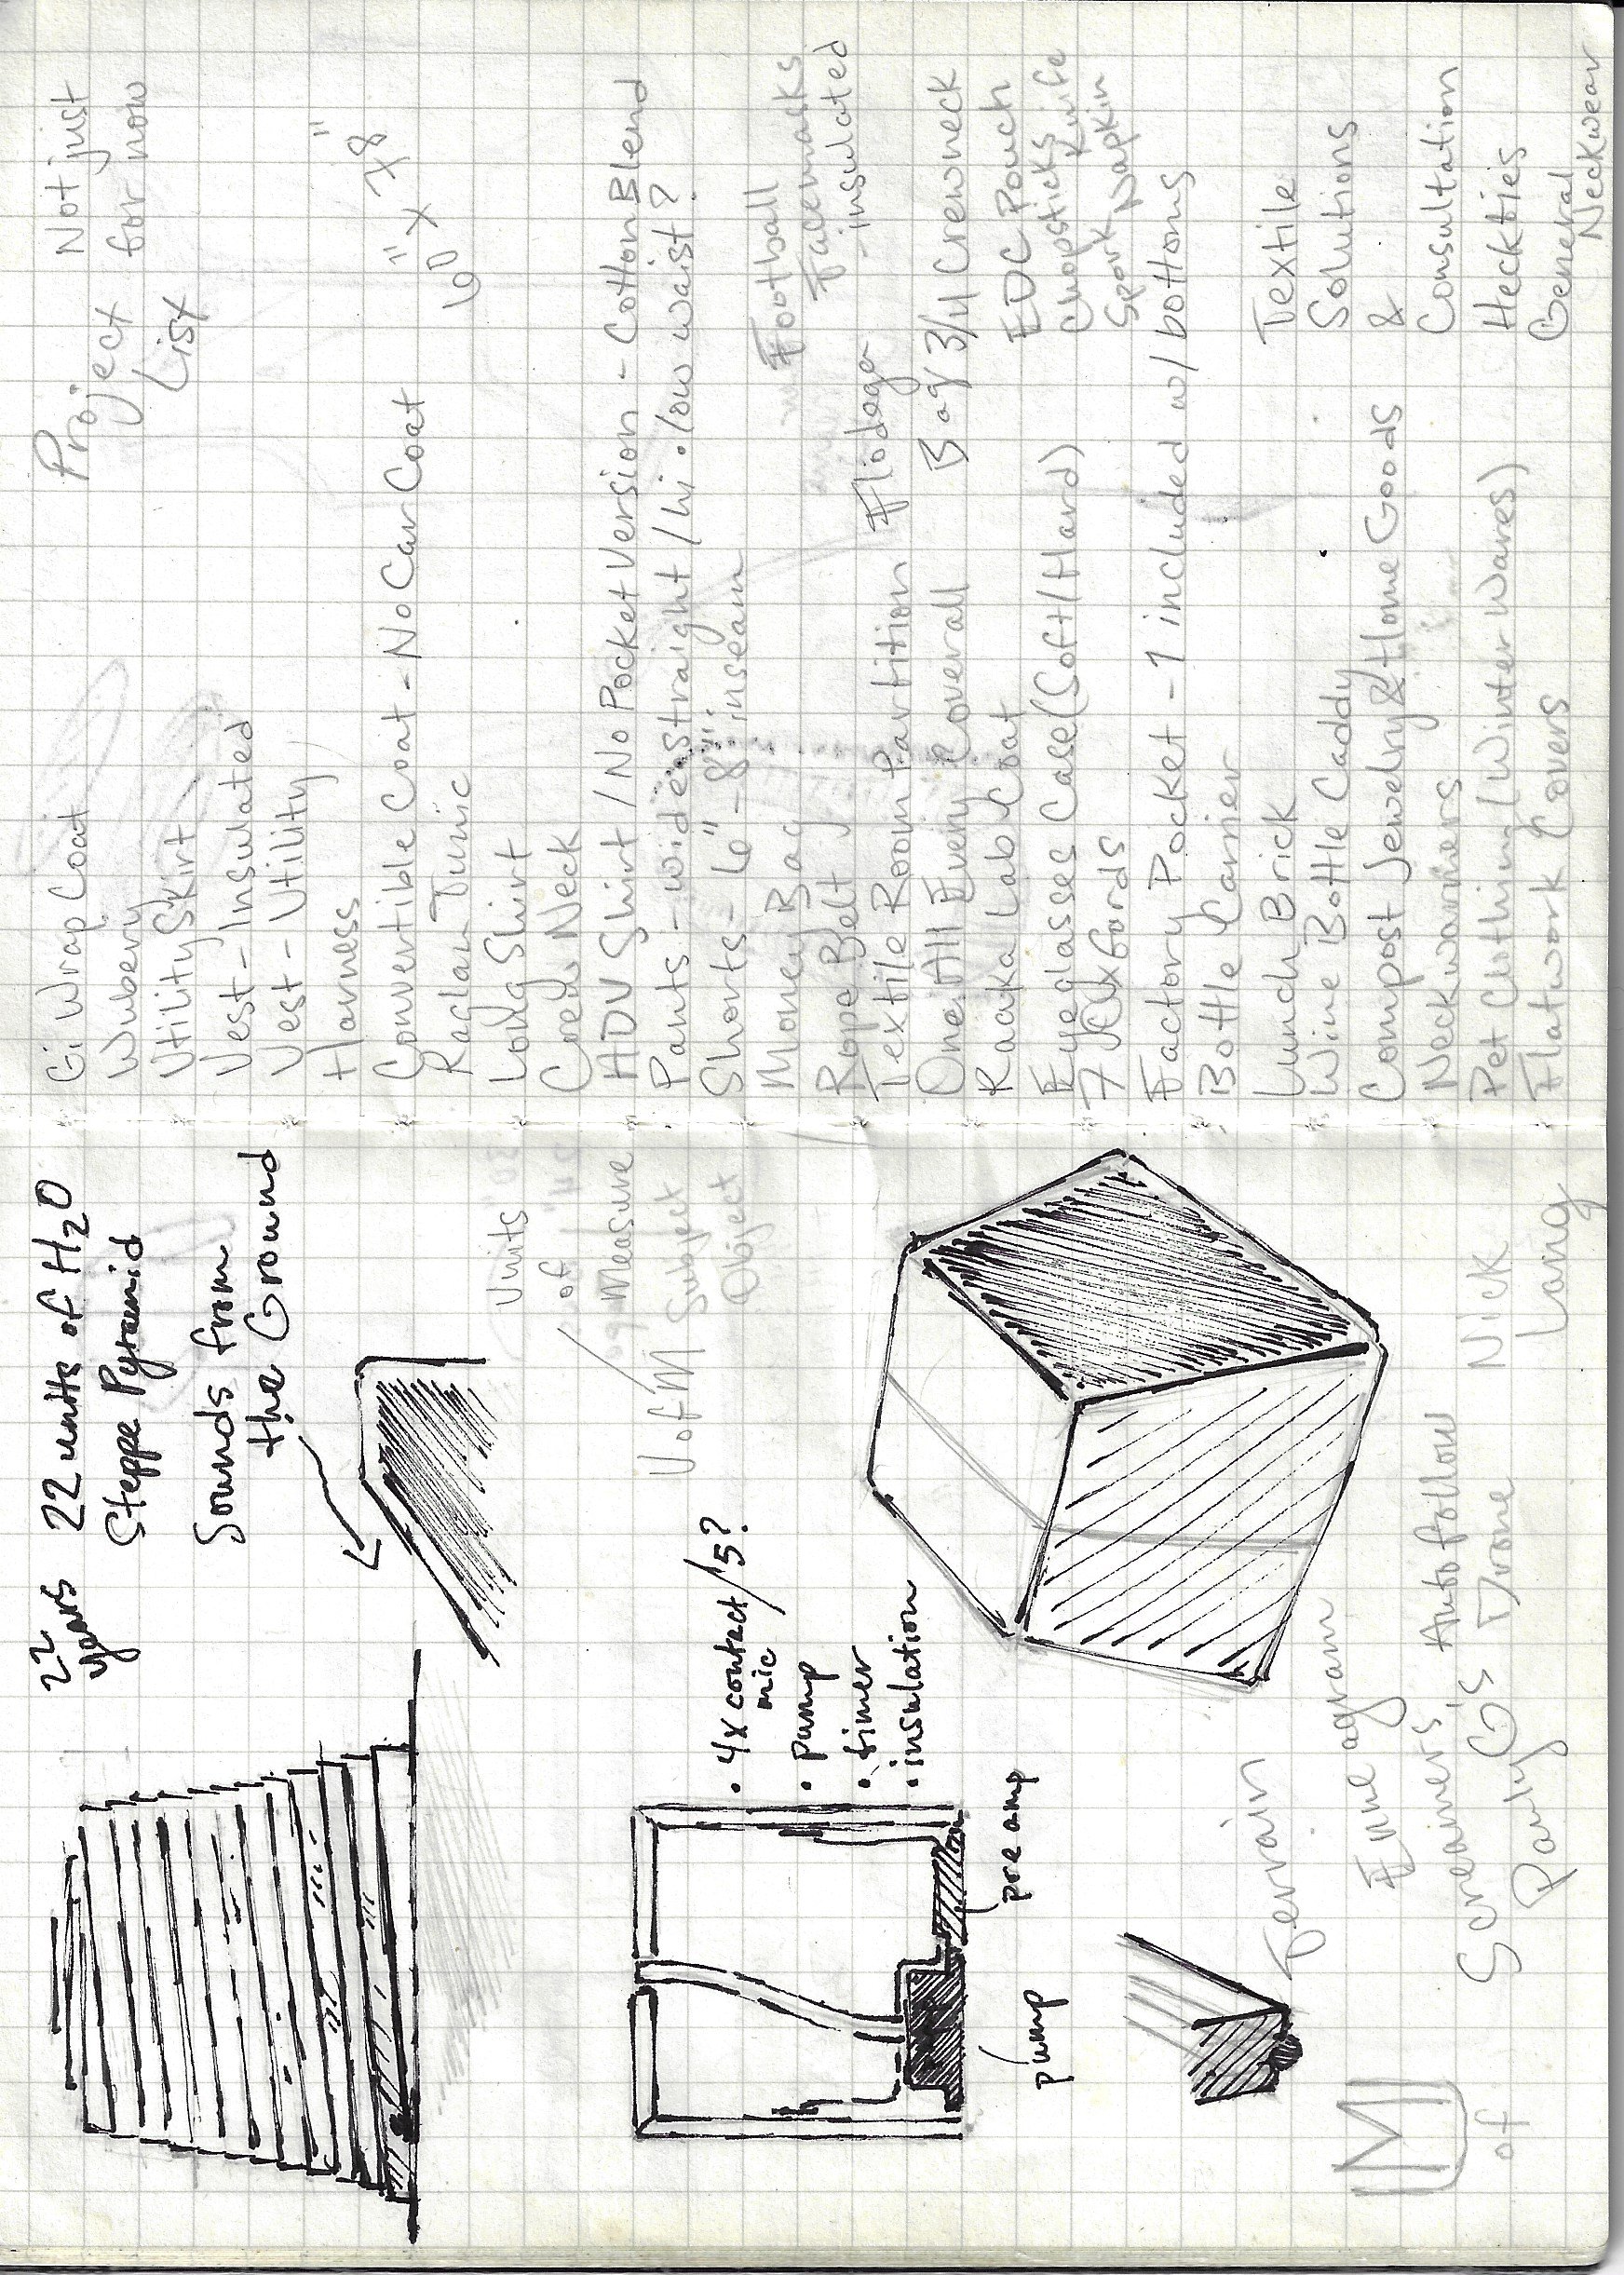 22 years
22 units of H2O
Steppe Pyramid
Sounds from
the Ground
Units
of
Measure
U of M
Subject
Object
• 4x contact/5?
mic
• pump
• timer
• insulation
pump
preamp
Terrain
M
of
Auto follow
Drone
Nick
Lang
Project
List
Not just
for now
Gi Wrap Coat
Wubery
Utility Skirt
Vest - Insulated
Vest - Utility
Harness
60" x 78"
Convertible Coat - No Car Coat
Raglan Tunic
Long Shirt
Neck
ADU Shirt / No Pocket Version - Cotton Blend
Pants - wide straight / hi . low waist?
Shorts - 6" - 8" inseam
Money Bag
Football
Facemasks
- insulated
Rope Belt
Textile Room Partition
One All Every Coverall
Bag 3/4 Crewneck
Lab Coat
EDC Pouch
Chopsticks
Knife
Spork Napkin
Eyeglasses Case (Soft/Hard)
Factory Pocket - 1 included w/ bottoms
Bottle Carrier
Lunch Brick
Wine Bottle Caddy
Textile
Solutions
&
Consultation
Compost Jewelry & Home Goods
Neckwarmers
Pet Clothing (Winter Wares)
Flatwork Covers
Neckties
General
Neckwear